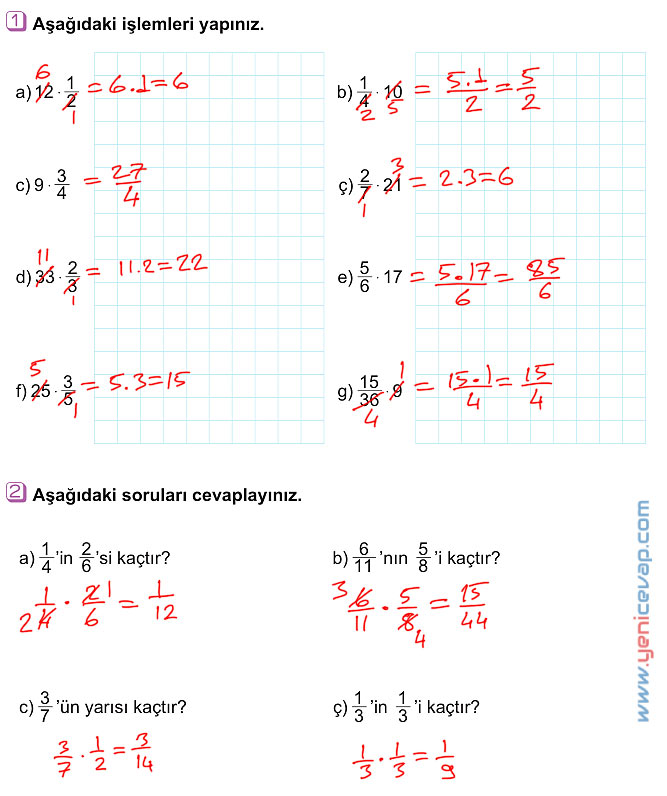 1 Aşağıdaki işlemleri yapınız.
a) 12 · 1/2 6 1 = 6.1=6
b) 1/4 · 10 2 5 = 5.1/2 = 5/2
c) 9 · 3/4 = 27/4
ç) 2/7 · 21 1 3 = 2.3=6
d) 33 · 2/3 11 1 = 11.2=22
e) 5/6 · 17 = 5.17/6 = 85/6
f) 25 · 3/5 5 1 = 5.3=15
g) 15/36 · 9 4 1 = 15.1/4 = 15/4
2 Aşağıdaki soruları cevaplayınız.
a) 1/4 'in 2/6 'si kaçtır?
1/4 · 2/6 2 1 = 1/12
b) 6/11 'nın 5/8 'i kaçtır?
6/11 · 5/8 3 4 = 15/44
c) 3/7 'ün yarısı kaçtır?
3/7 · 1/2 = 3/14
ç) 1/3 'in 1/3 'i kaçtır?
1/3 · 1/3 = 1/9
www.yenicevap.com